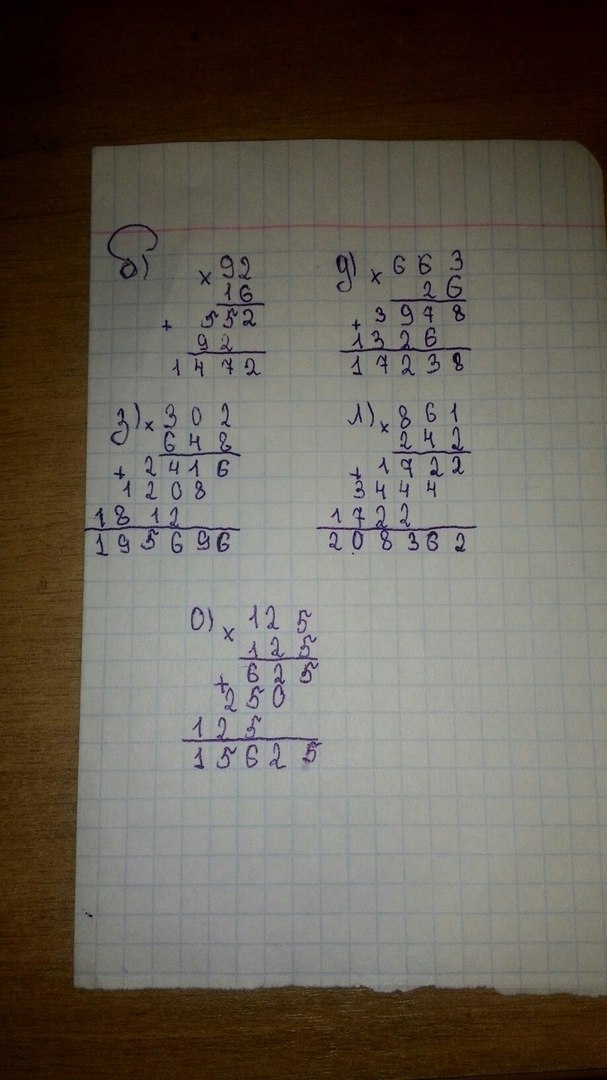 д) × 663
0) × 92
26
16
+ 3978
+ 552
1326
92
17238
1472
з) × 302
л) × 861
648
242
+ 2416
+ 1722
1208
3444
1812
1722
195696
208362
0) × 125
125
+ 625
250
125
15625